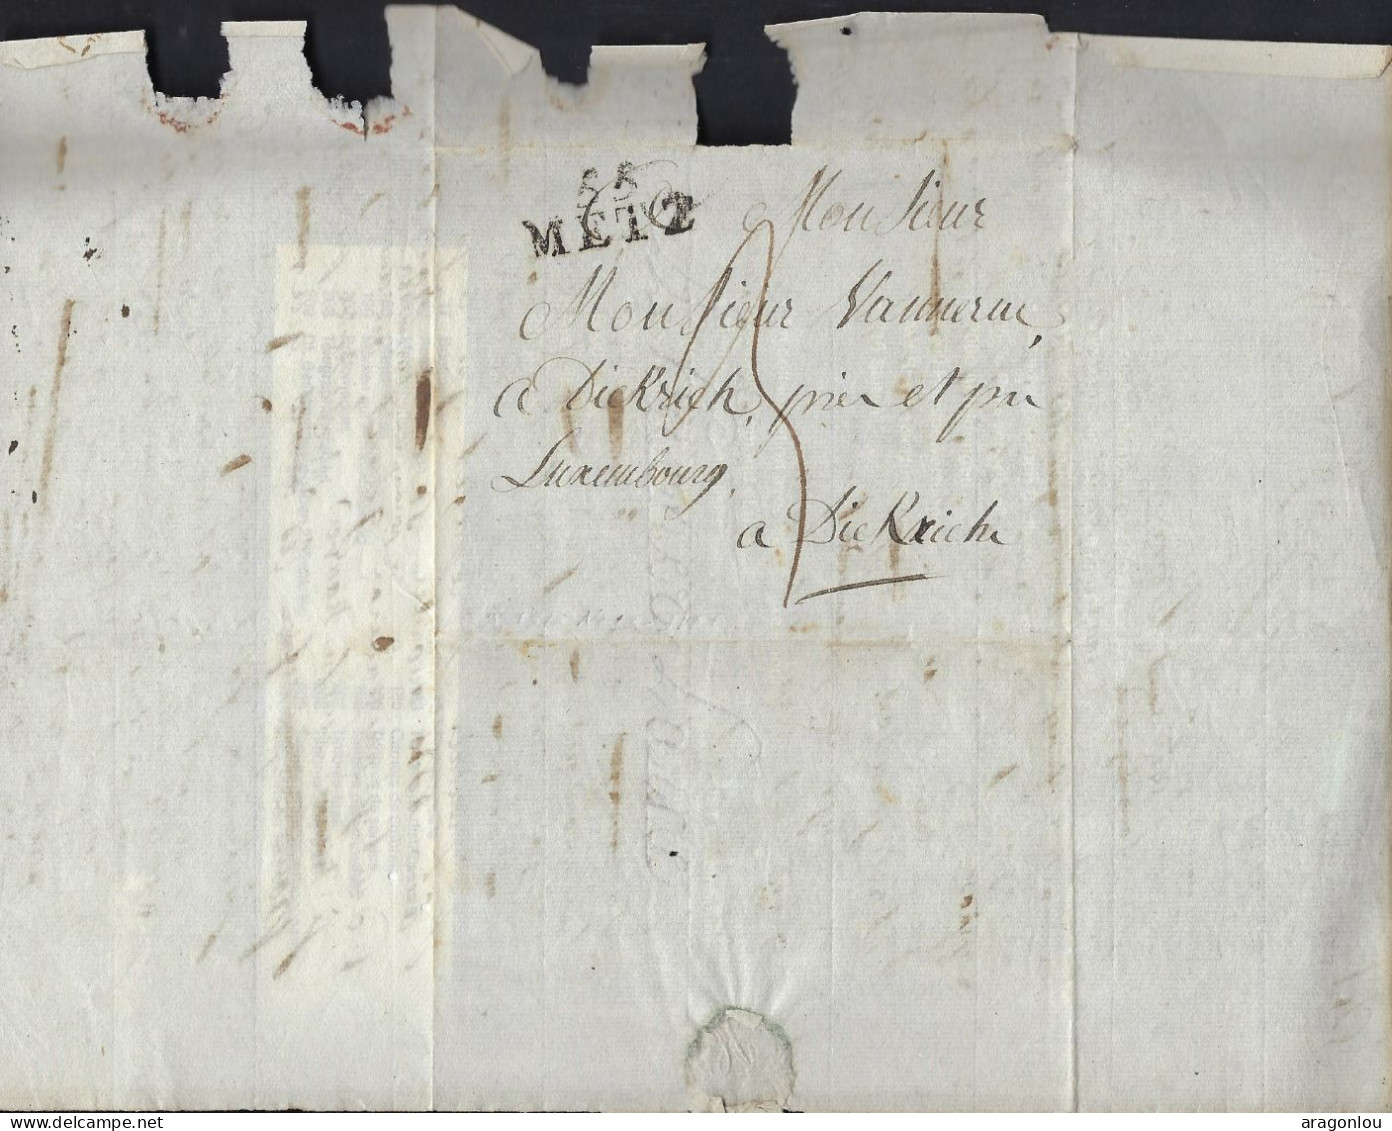 55
METZ
Monsieur
Monsieur Vannerus,
a Diekrich, près et par
Luxembourg,
a DieKrich
aragonlou